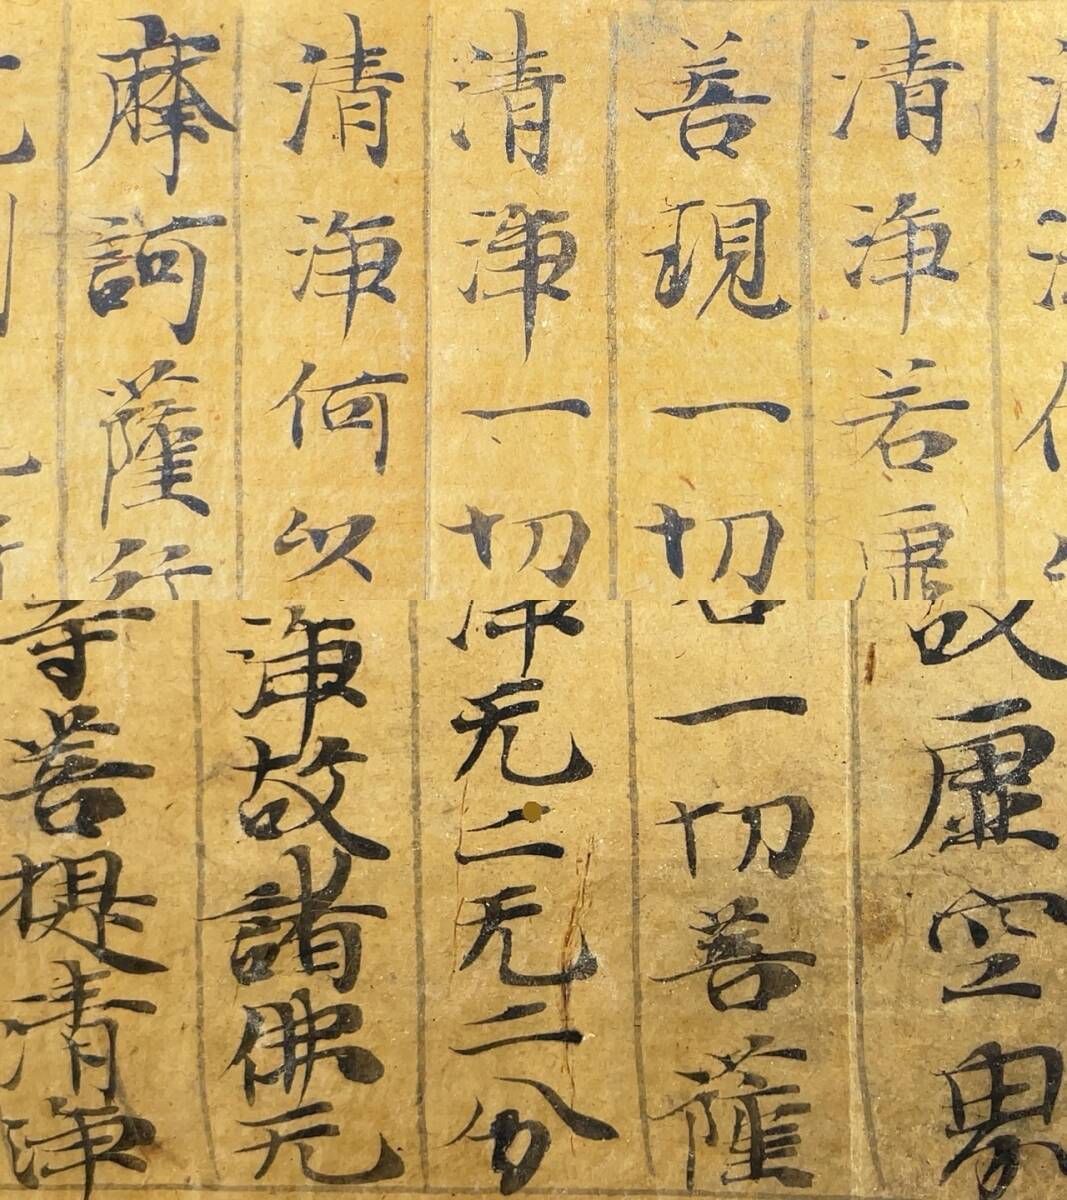 清淨若虛
善現一切
清淨一切
清淨何以
摩訶薩行
故虛空界
一切菩薩
淨无二无二分
淨故諸佛无
等菩提清淨